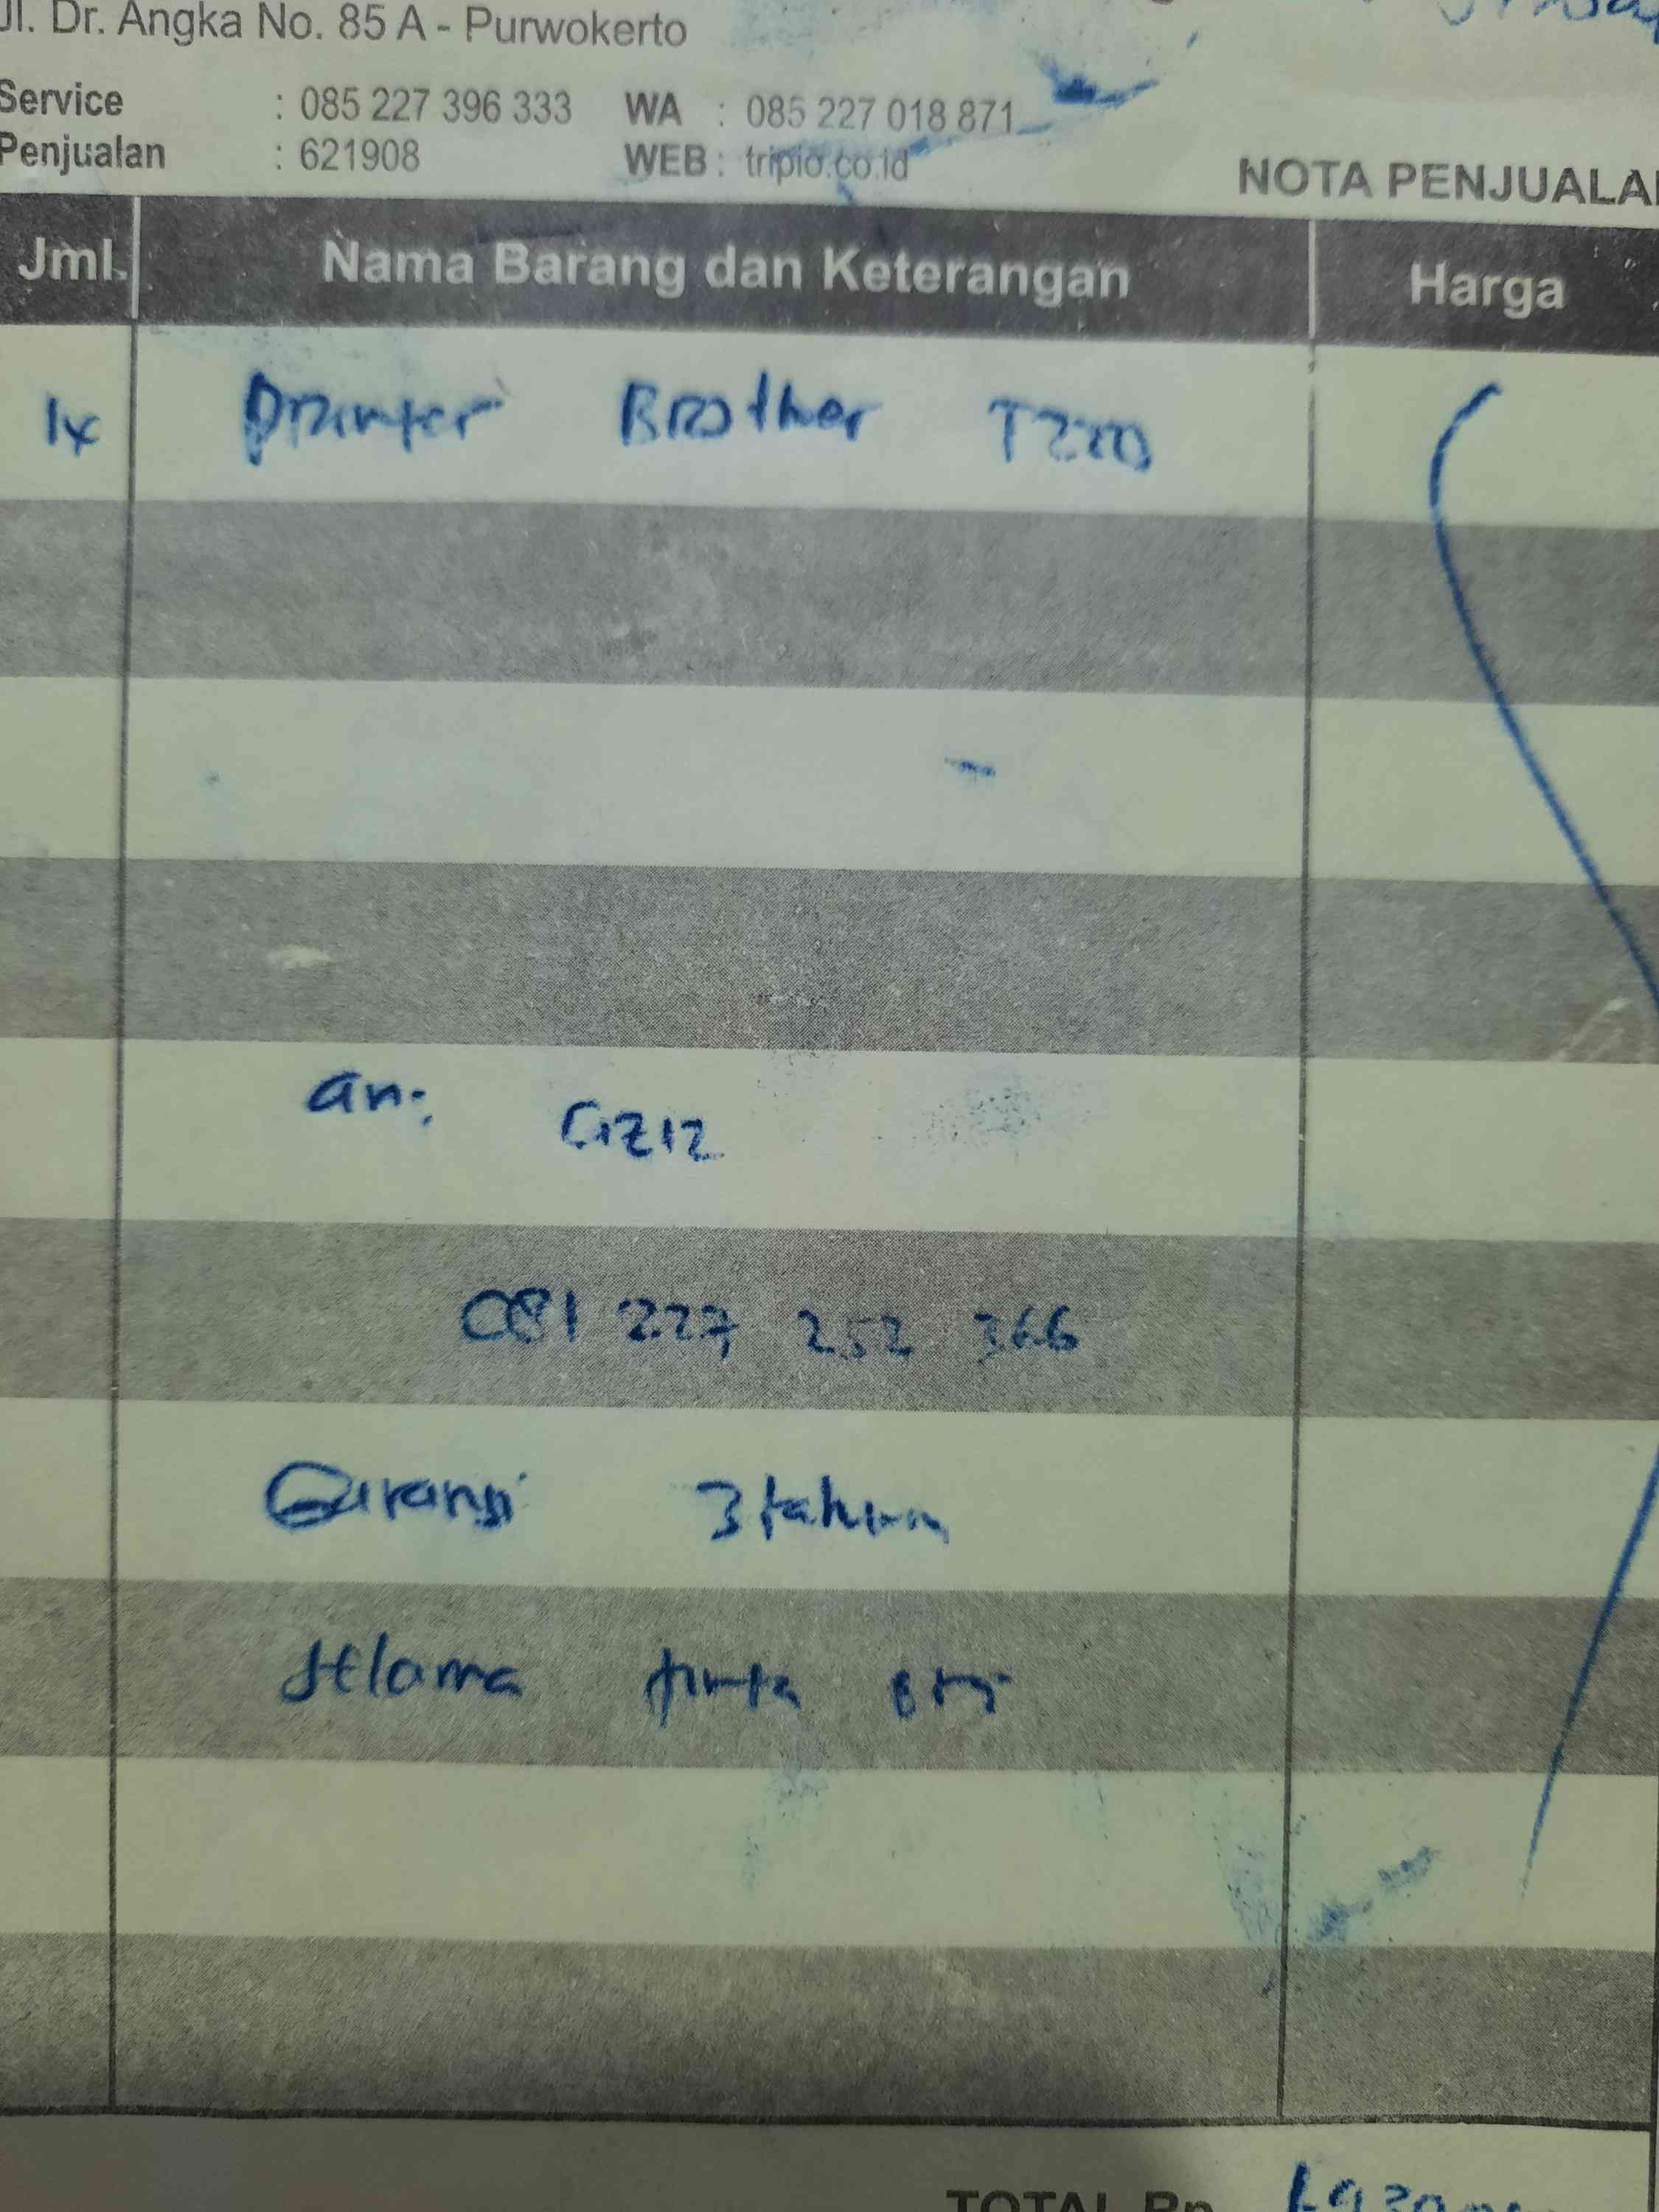 Jl. Dr. Angka No. 85 A - Purwokerto
Service : 085 227 396 333 WA : 085 227 018 871
Penjualan : 621908 WEB : tripio.co.id
NOTA PENJUALAN
Jml. Nama Barang dan Keterangan Harga
1x Printer Brother T220
an:
081 227 252 366
Garansi 3 tahun
selama tinta ori
TOTAL Rp